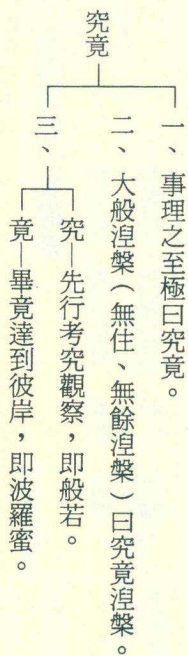 究竟
一、事理之至極曰究竟。
二、大般涅槃（無住、無餘涅槃）曰究竟涅槃。
三、
究—先行考究觀察，即般若。
竟—畢竟達到彼岸，即波羅蜜。